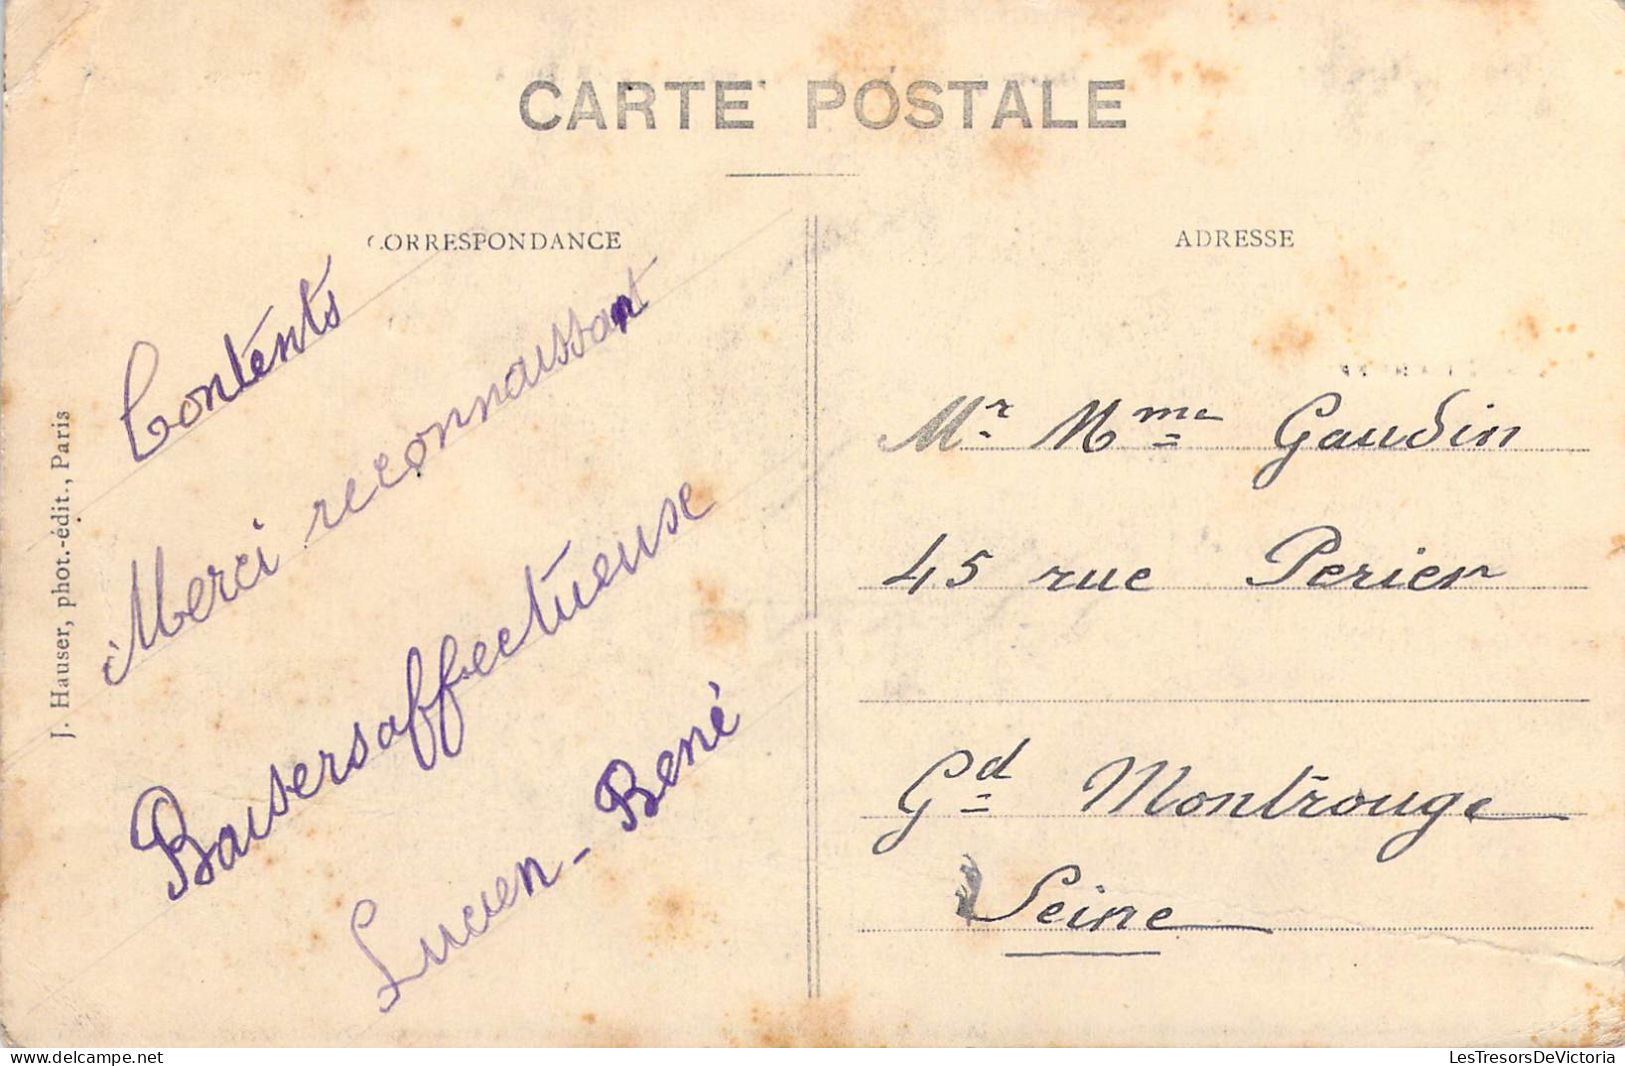 CARTE POSTALE
CORRESPONDANCE
Contents
Merci reconnaissant
Baisers affectueuse
Lucien - René
J. Hauser, phot.-édit., Paris
ADRESSE
Mr. Mme Gaudin
45 rue Perier
Gd Montrouge
Seine
www.delcampe.net
LesTresorsDeVictoria